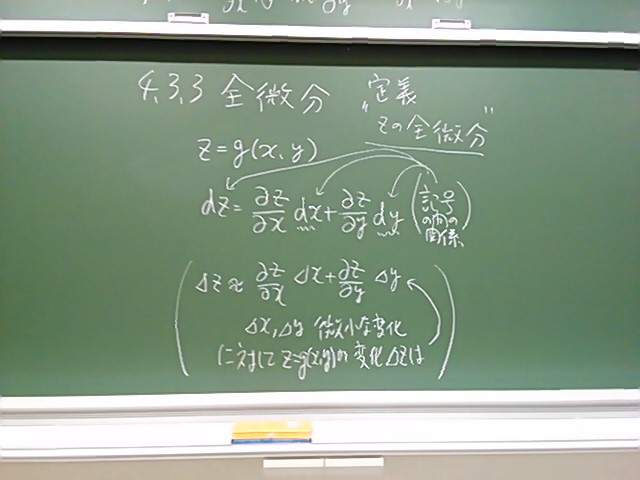 4.3.3 全微分 "定義
zの全微分"
z = g(x, y)
dz = ∂z/∂x dx + ∂z/∂y dy (記号
の間の
関係)
(Δz ≈ ∂z/∂x Δx + ∂z/∂y Δy
Δx, Δy 微小な変化
に対して z=g(x,y)の変化Δzは)